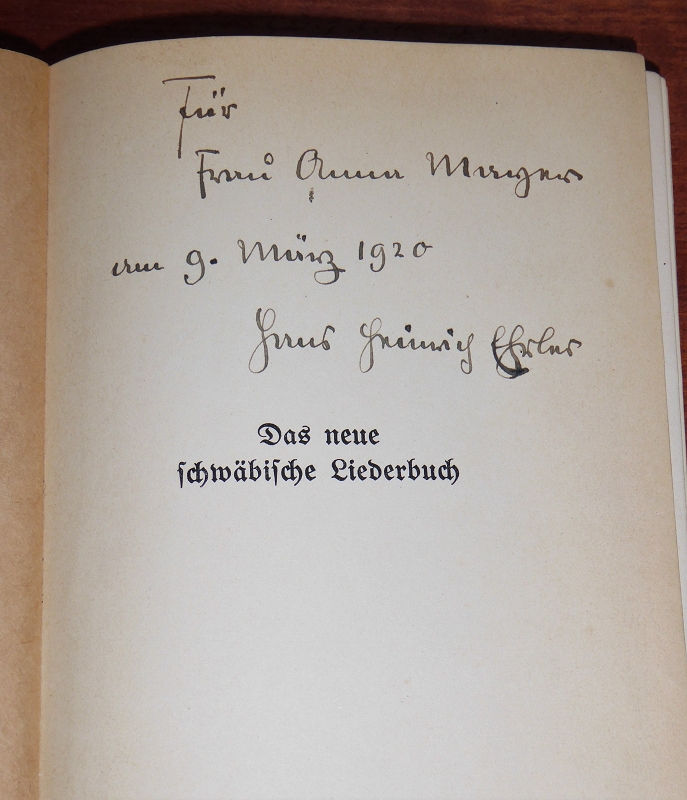 Für
Frau Anna Mayer
am 9. März 1920
Hans Heinrich Ehrler
Das neue
schwäbische Liederbuch